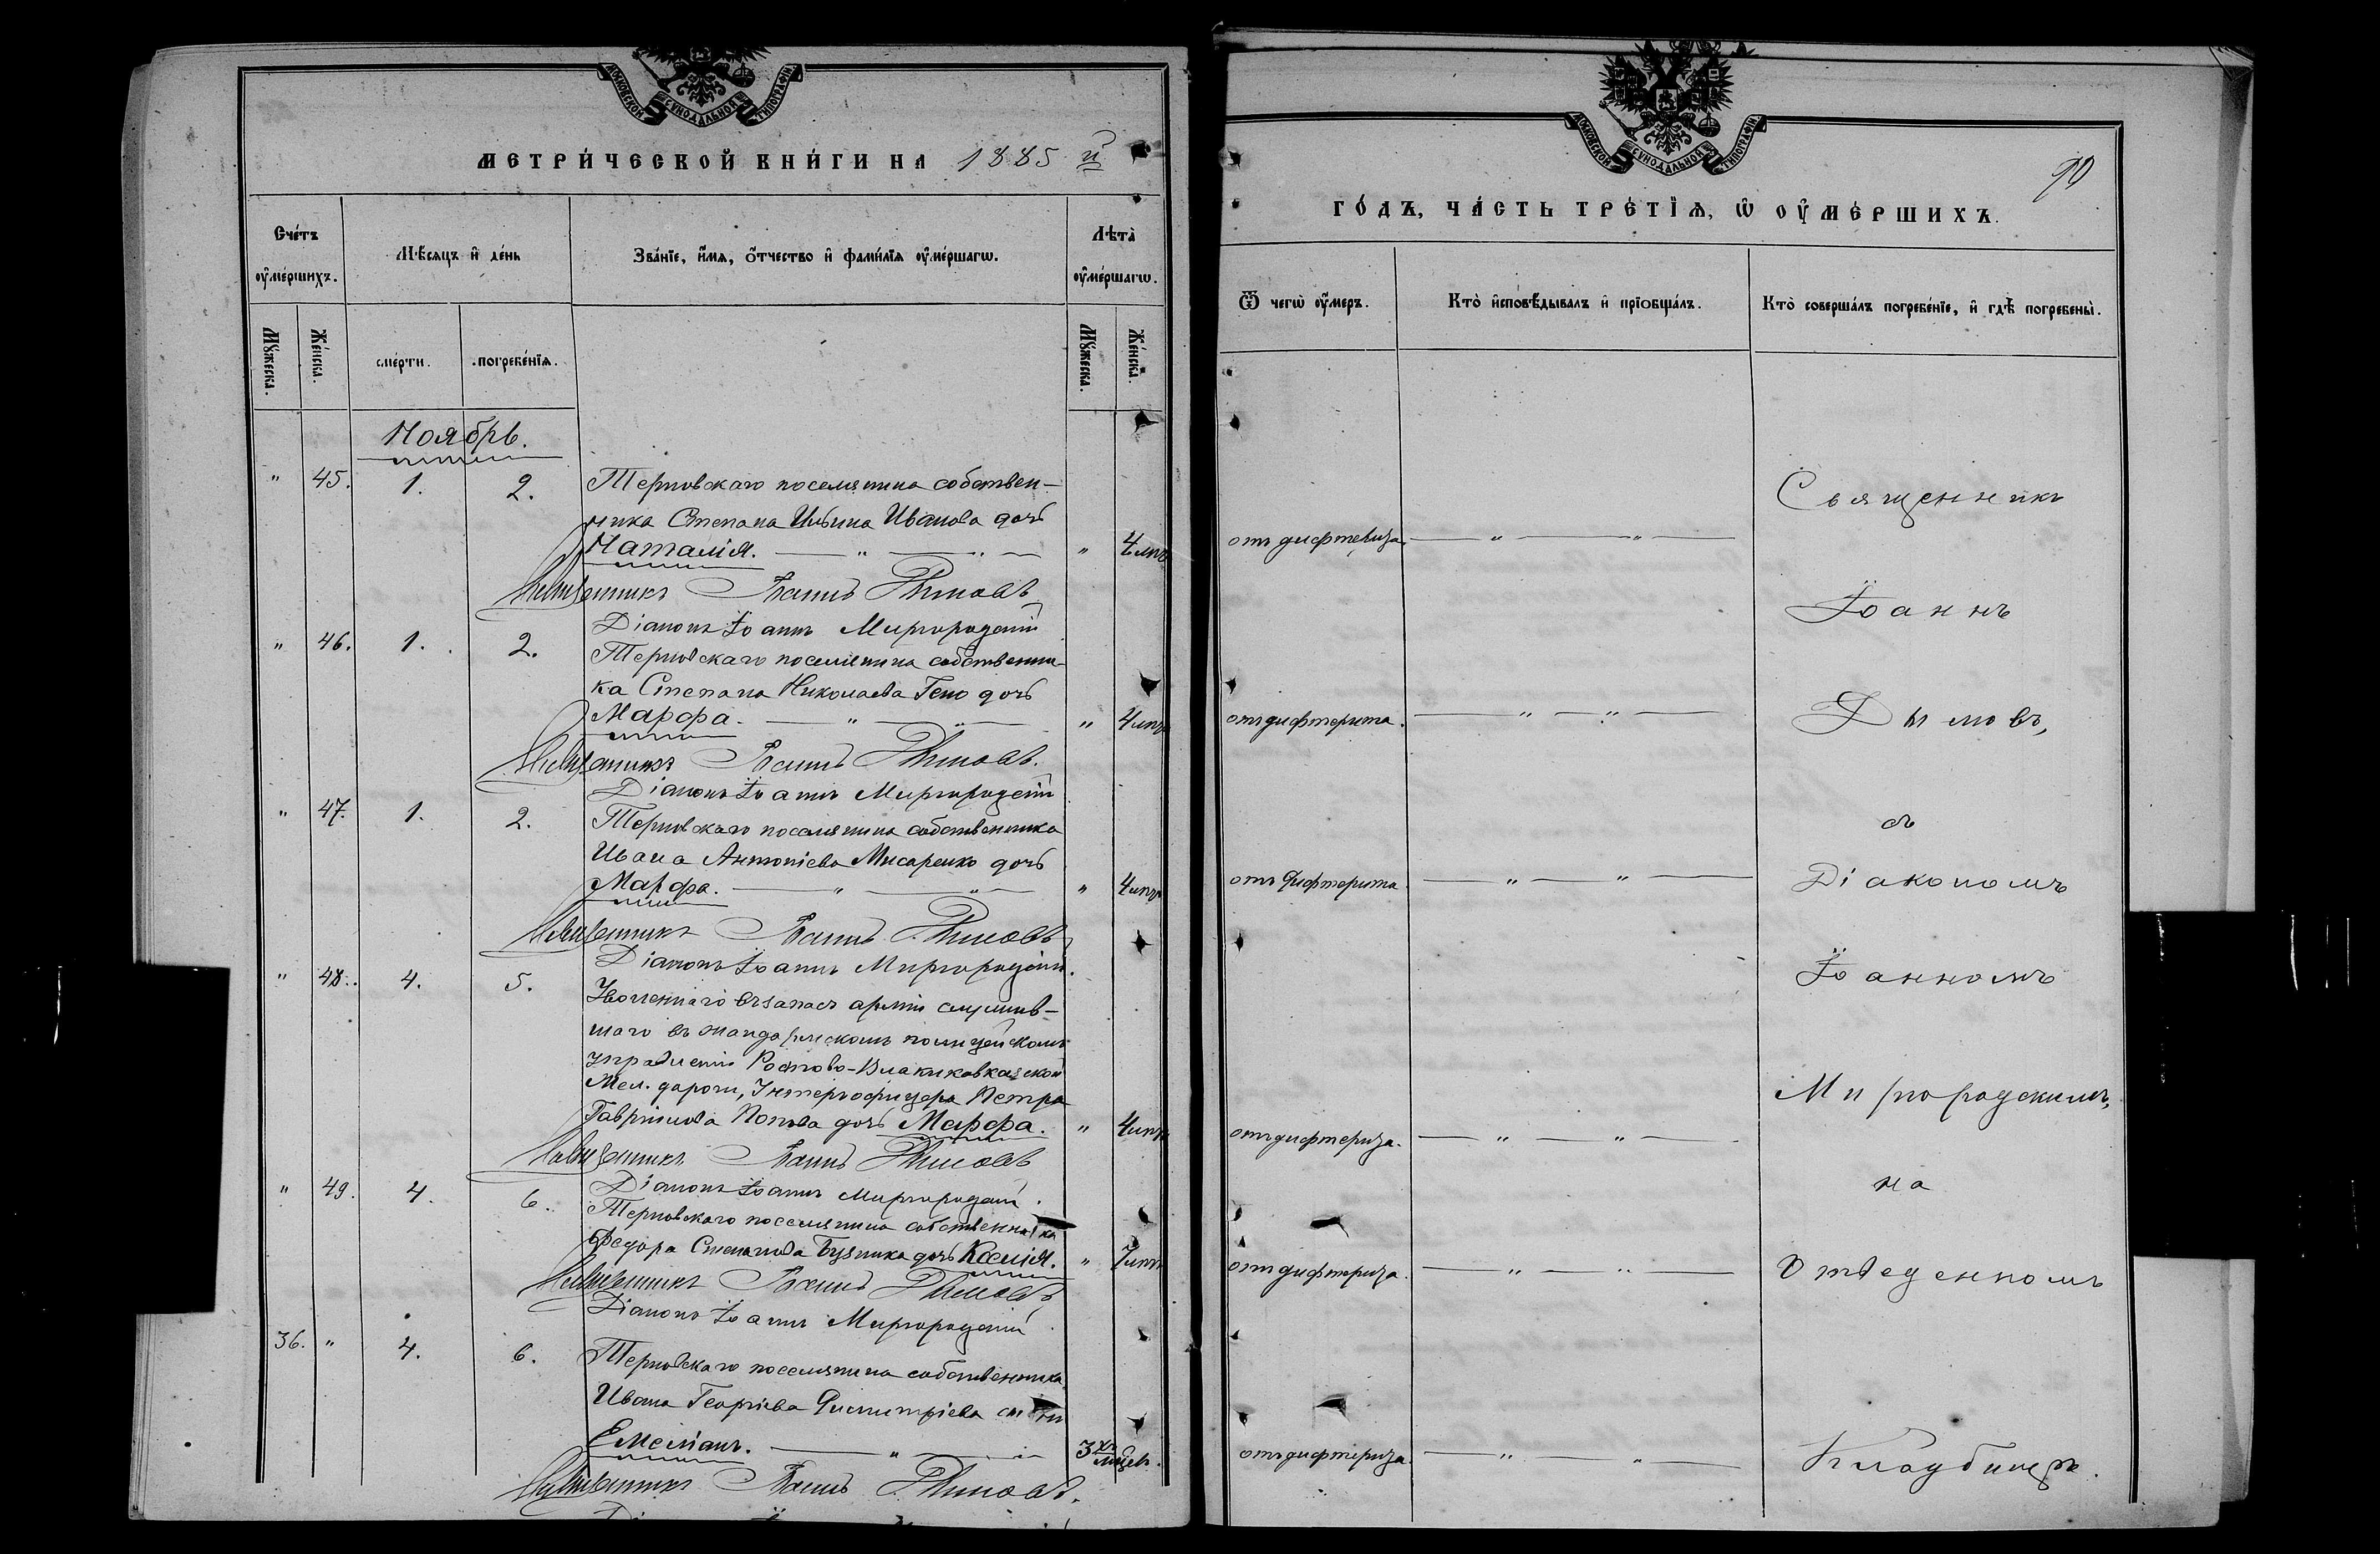 МОСКОВСКОЙ СѴНОДАЛЬНОЙ ТИПОГРАФІИ
МЕТРИ́ЧЕСКОЙ КНИ́ГИ НА 1885 й
Сче́тъ оу҆ме́ршихъ.
Мѣ́сяцъ и҆ де́нь
Зва́нїе, и҆́мя, ѻ҆́тчество и҆ фами́лїя оу҆ме́ршагѡ.
Лѣта̀ оу҆ме́ршагѡ.
Мꙋ́жеска.
Же́нска.
сме́рти.
погребе́нїя.
Мꙋ́жеска.
Же́нска.
Ноябрь.
" 45. 1. 2. Терновскаго поселянина собствен-
ника Степана Иванова дочь
Наталія. — " — " — " 4 лѣтъ
Священникъ Іоаннъ Дымовъ
Діаконъ Іоаннъ Миргородскій
" 46. 1. 2. Терновскаго поселянина собственни-
ка Степана Николаева Гено дочь
Марфа. — " — " — " 4 лѣтъ
Священникъ Іоаннъ Дымовъ.
Діаконъ Іоаннъ Миргородскій
" 47. 1. 2. Терновскаго поселянина собственника
Ивана Антоніева Писаренко дочь
Марфа. — " — " — " 4 лѣтъ
Священникъ Іоаннъ Дымовъ
Діаконъ Іоаннъ Миргородскій.
" 48. 4. 5. Уволеннаго въ запасъ арміи служив-
шаго въ жандармскомъ полицейскомъ
управленіи Ростово-Владикавказской
Жел. дороги, Унтеръ офицера Петра
Гавріилова Попова дочь Марфа. " 4 лѣтъ
Священникъ Іоаннъ Дымовъ
Діаконъ Іоаннъ Миргородскій.
" 49. 4. 6. Терновскаго поселянина собственника
Федора Степанова Бузника дочь Ксенія. " 7 лѣтъ
Священникъ Іоаннъ Дымовъ
Діаконъ Іоаннъ Миргородскій
36. " 4. 6. Терновскаго поселянина собственника
Ивана Георгіева Димитріева сынъ
Емеліанъ. — " — " — 3 хъ мѣсяц.
Священникъ Іоаннъ Дымовъ.
МОСКОВСКОЙ СѴНОДАЛЬНОЙ ТИПОГРАФІИ
90
ГО́ДЪ, ЧА́СТЬ ТРЕ́ТЇЯ, Ѡ҆ ОУ҆МЕ́РШИХЪ.
Ѿ чегѡ̀ оу҆́меръ.
Кто̀ и҆сповѣ́дывалъ и҆ прїѻбща́лъ.
Кто̀ соверша́лъ погребе́нїе, и҆ гдѣ̀ погребены̀.
Священникъ
отъ дифтериза. — " — " —
Іоаннъ
отъ дифтерита. — " — " —
Дымовъ,
съ
отъ дифтерита. — " — " —
Діакономъ
Іоанномъ
Миргородскимъ,
отъ дифтериза. — " — " —
на
отъ дифтериза. — " — " —
Отведенномъ
отъ дифтериза. — " — " —
Кладбищѣ.